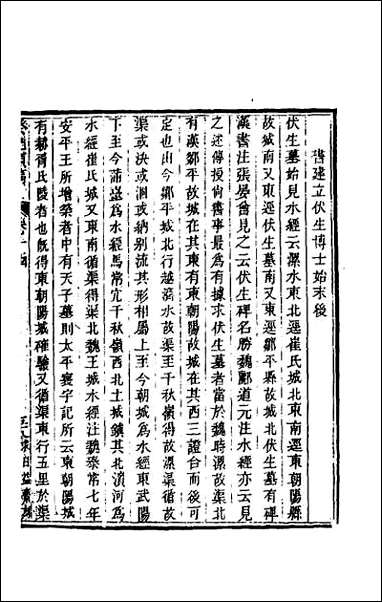 書建立伏生博士始末後
伏生墓始見水經云漯水東北逕崔氏城北東南逕東朝陽縣
故城南又東逕伏生墓南又東逕鄒平縣故城北伏生墓有碑
漢書注張晏曾見之云伏生碑名勝魏酈道元注水經亦云見
之述傳授尚書事最爲有據求伏生墓者當於魏時漯故
有漢鄒平故城在其東有東朝陽故城在其西三證合而後可
定也由今鄒平城北行越漬水故渠至千秋嶺得故漯渠循故
渠或決或洄或納別流其形相屬上至今朝城爲水經東武陽
下至今蒲臺爲水經馬常宂千秋嶺西北土城鎮其北流河爲
水經崔氏城又東南循渠得渠北魏王城水經注魏泰常七年
安平王所增築者中有天子墓則太平寰宇記所云東朝陽城
有耏胥氏陵者也既得東朝陽城確驗又循渠東行五里於渠